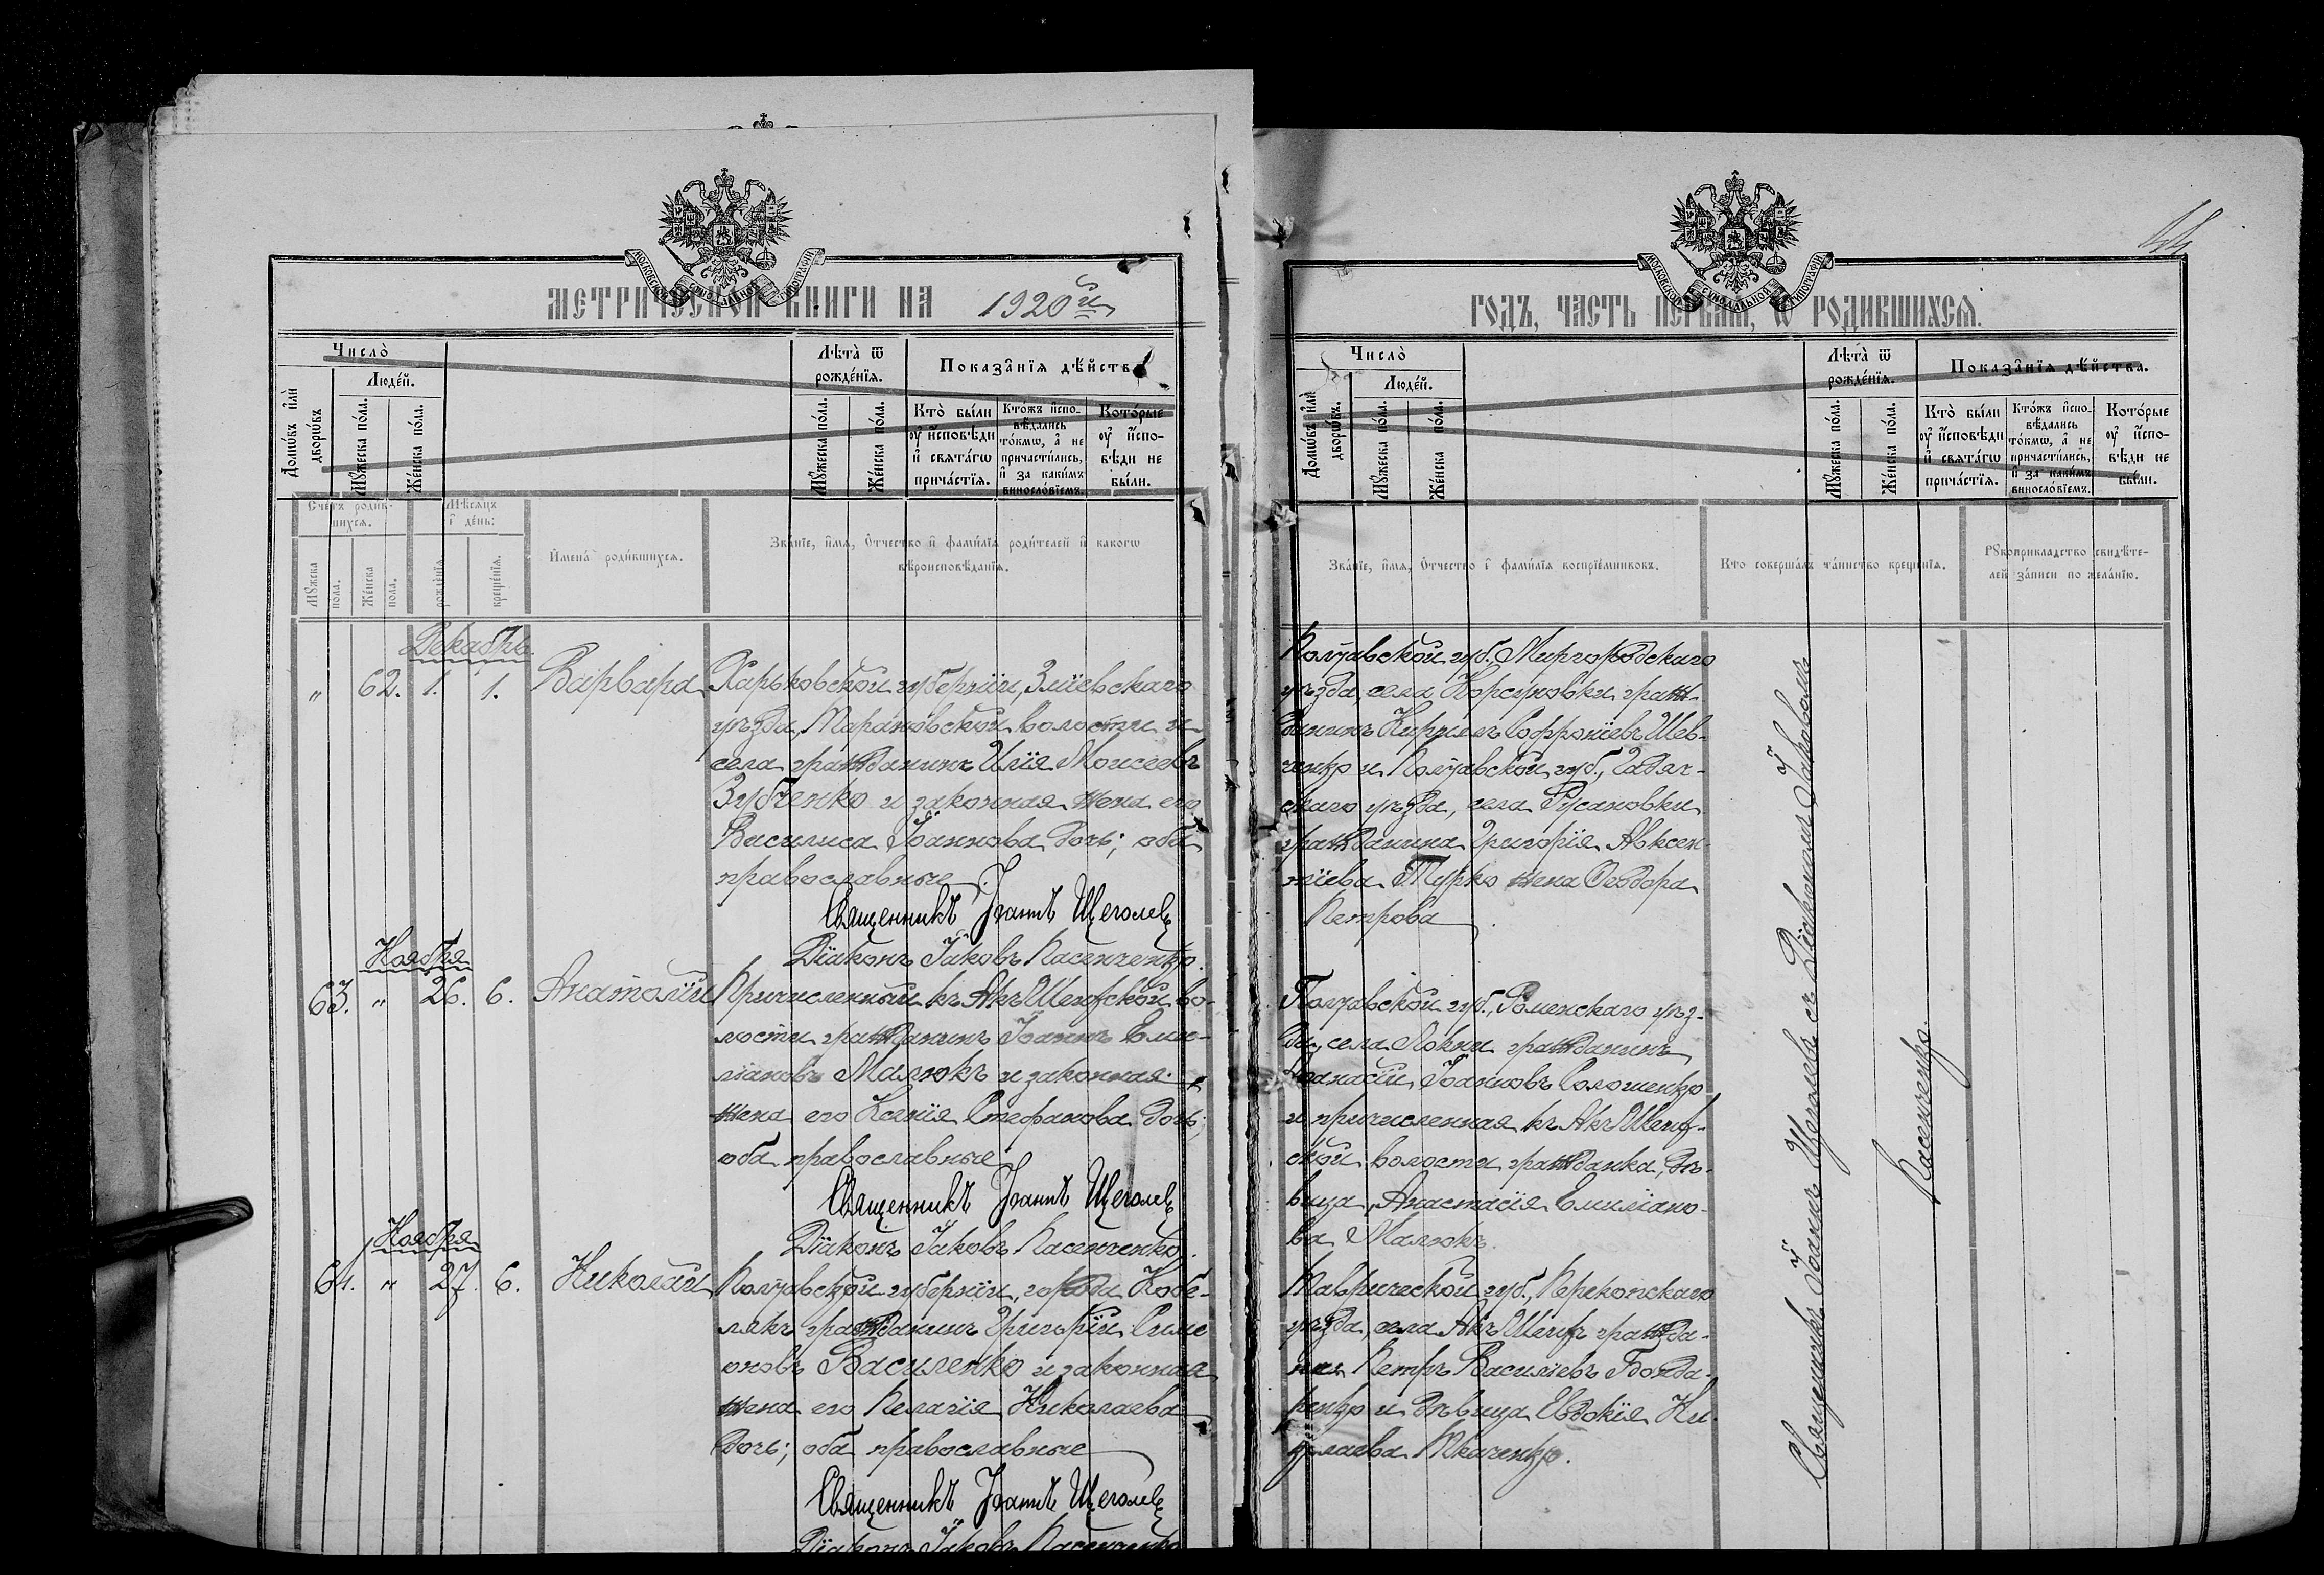 МОСКОВСКОЙ СѴНОДАЛЬНОЙ ТИПОГРАФІИ
МЕТРИЧЕСКОЙ КНИГИ НА 1920й
Число̀
Людей.
Домѡвъ и҆лѝ дворѡвъ
Мꙋжеска по́ла.
Же́нска по́ла.
Лѣта̀ ѿ рожде́нїя.
Мꙋжеска по́ла.
Же́нска по́ла.
Показа̂нїя дѣ́йства
Кто̀ бы́ли ᲂу҆ и҆сповѣди и҆ свята́гѡ прича́стїя.
Кто́жъ и҆сповѣдались то́кмѡ, а҆ не причасти́лись, и҆ за каки́мъ винослόвїемъ.
Кото́рые ᲂу҆ и҆сповѣди не бы́ли.
Сче́тъ роди́вшихся.
Мꙋжска пола.
Же́нска пола.
Мѣсяцъ і де́нь:
рожденїя.
крещенїя.
И҆мена̀ роди́вшихся.
Зва́нїе, и҆мя, ѻ҆тчество и҆ фами́лїя роди́телей и҆ какогѡ вѣроисповѣданїя.
Декабрь.
" 62. 1. 1. Варвара
Харьковской губерніи, Зміевскаго
уѣзда, Тарановской волости и
села гражданинъ Илія Моисеевъ
Зубченко и законная жена его
Василиса Іоаннова дочь; оба
православные.
Священникъ Іоаннъ Щеголевъ
Діаконъ Іаковъ Пасенченко.
Ноября
63. " 26. 6. Анатолій
Причисленный къ Акъ Шеихской во-
лости гражданинъ Іоаннъ Еми-
ліановъ Малюкъ и законная
жена его Ксенія Стефанова дочь;
оба православные
Священникъ Іоаннъ Щеголевъ
Діаконъ Іаковъ Пасенченко.
Ноября
64. " 27. 6. Николай
Полтавской губерніи, города Кобе-
лякъ гражданинъ Григорій Симе
оновъ Василенко и законная
жена его Пелагія Николаева
дочь; оба православные
Священникъ Іоаннъ Щеголевъ
Діаконъ Іаковъ Пасенченко
МОСКОВСКОЙ СѴНОДАЛЬНОЙ ТИПОГРАФІИ
ГОДЪ, ЧАСТЬ ПЕРВАЯ, Ѡ РОДИВШИХСЯ.
Число̀
Людей.
Домѡвъ и҆лѝ дворѡвъ.
Мꙋжеска по́ла.
Же́нска по́ла.
Лѣта̀ ѿ рожде́нїя.
Мꙋжеска по́ла.
Же́нска по́ла.
Показа̂нїя дѣ́йства.
Кто̀ бы́ли ᲂу҆ и҆сповѣди и҆ свята́гѡ прича́стїя.
Кто́жъ и҆сповѣдались то́кмѡ, а҆ не причасти́лись, и҆ за каки́мъ винослόвїемъ.
Кото́рые ᲂу҆ и҆сповѣди не бы́ли.
Зва́нїе, и҆мя, ѻ҆тчество і фами́лїя воспрїе́мниковъ.
Кто соверша́лъ та́инство креще́нїя.
Рꙋкоприкладство свидѣтелей за́писи по жела́нїю.
Полтавской губ. Миргородскаго
уѣзда, села Корсуновки граж-
данинъ Кириллъ Софроніевъ Шев-
ченко и Полтавской губ., Гадяч-
скаго уѣзда, села Русановки
гражданина Григорія Авксен-
тіева Турко жена Ѳеодора
Петрова
Полтавской губ., Роменскаго уѣз-
да, села Локни гражданинъ
Аѳанасій Іоанновъ Солошенко
и причисленная къ Акъ Шеих-
ской волости гражданка, дѣ-
вица, Анастасія Емиліано-
ва Малюкъ.
Таврической губ., Перекопскаго
уѣзда, села Акъ Шеихъ гражда-
нин Петръ Василіевъ Бонда-
ренко и дѣвица Евдокія Ни-
колаева Ткаченко.
Священникъ Іоаннъ Щеголевъ съ Діакономъ Іаковомъ
Пасенченко.